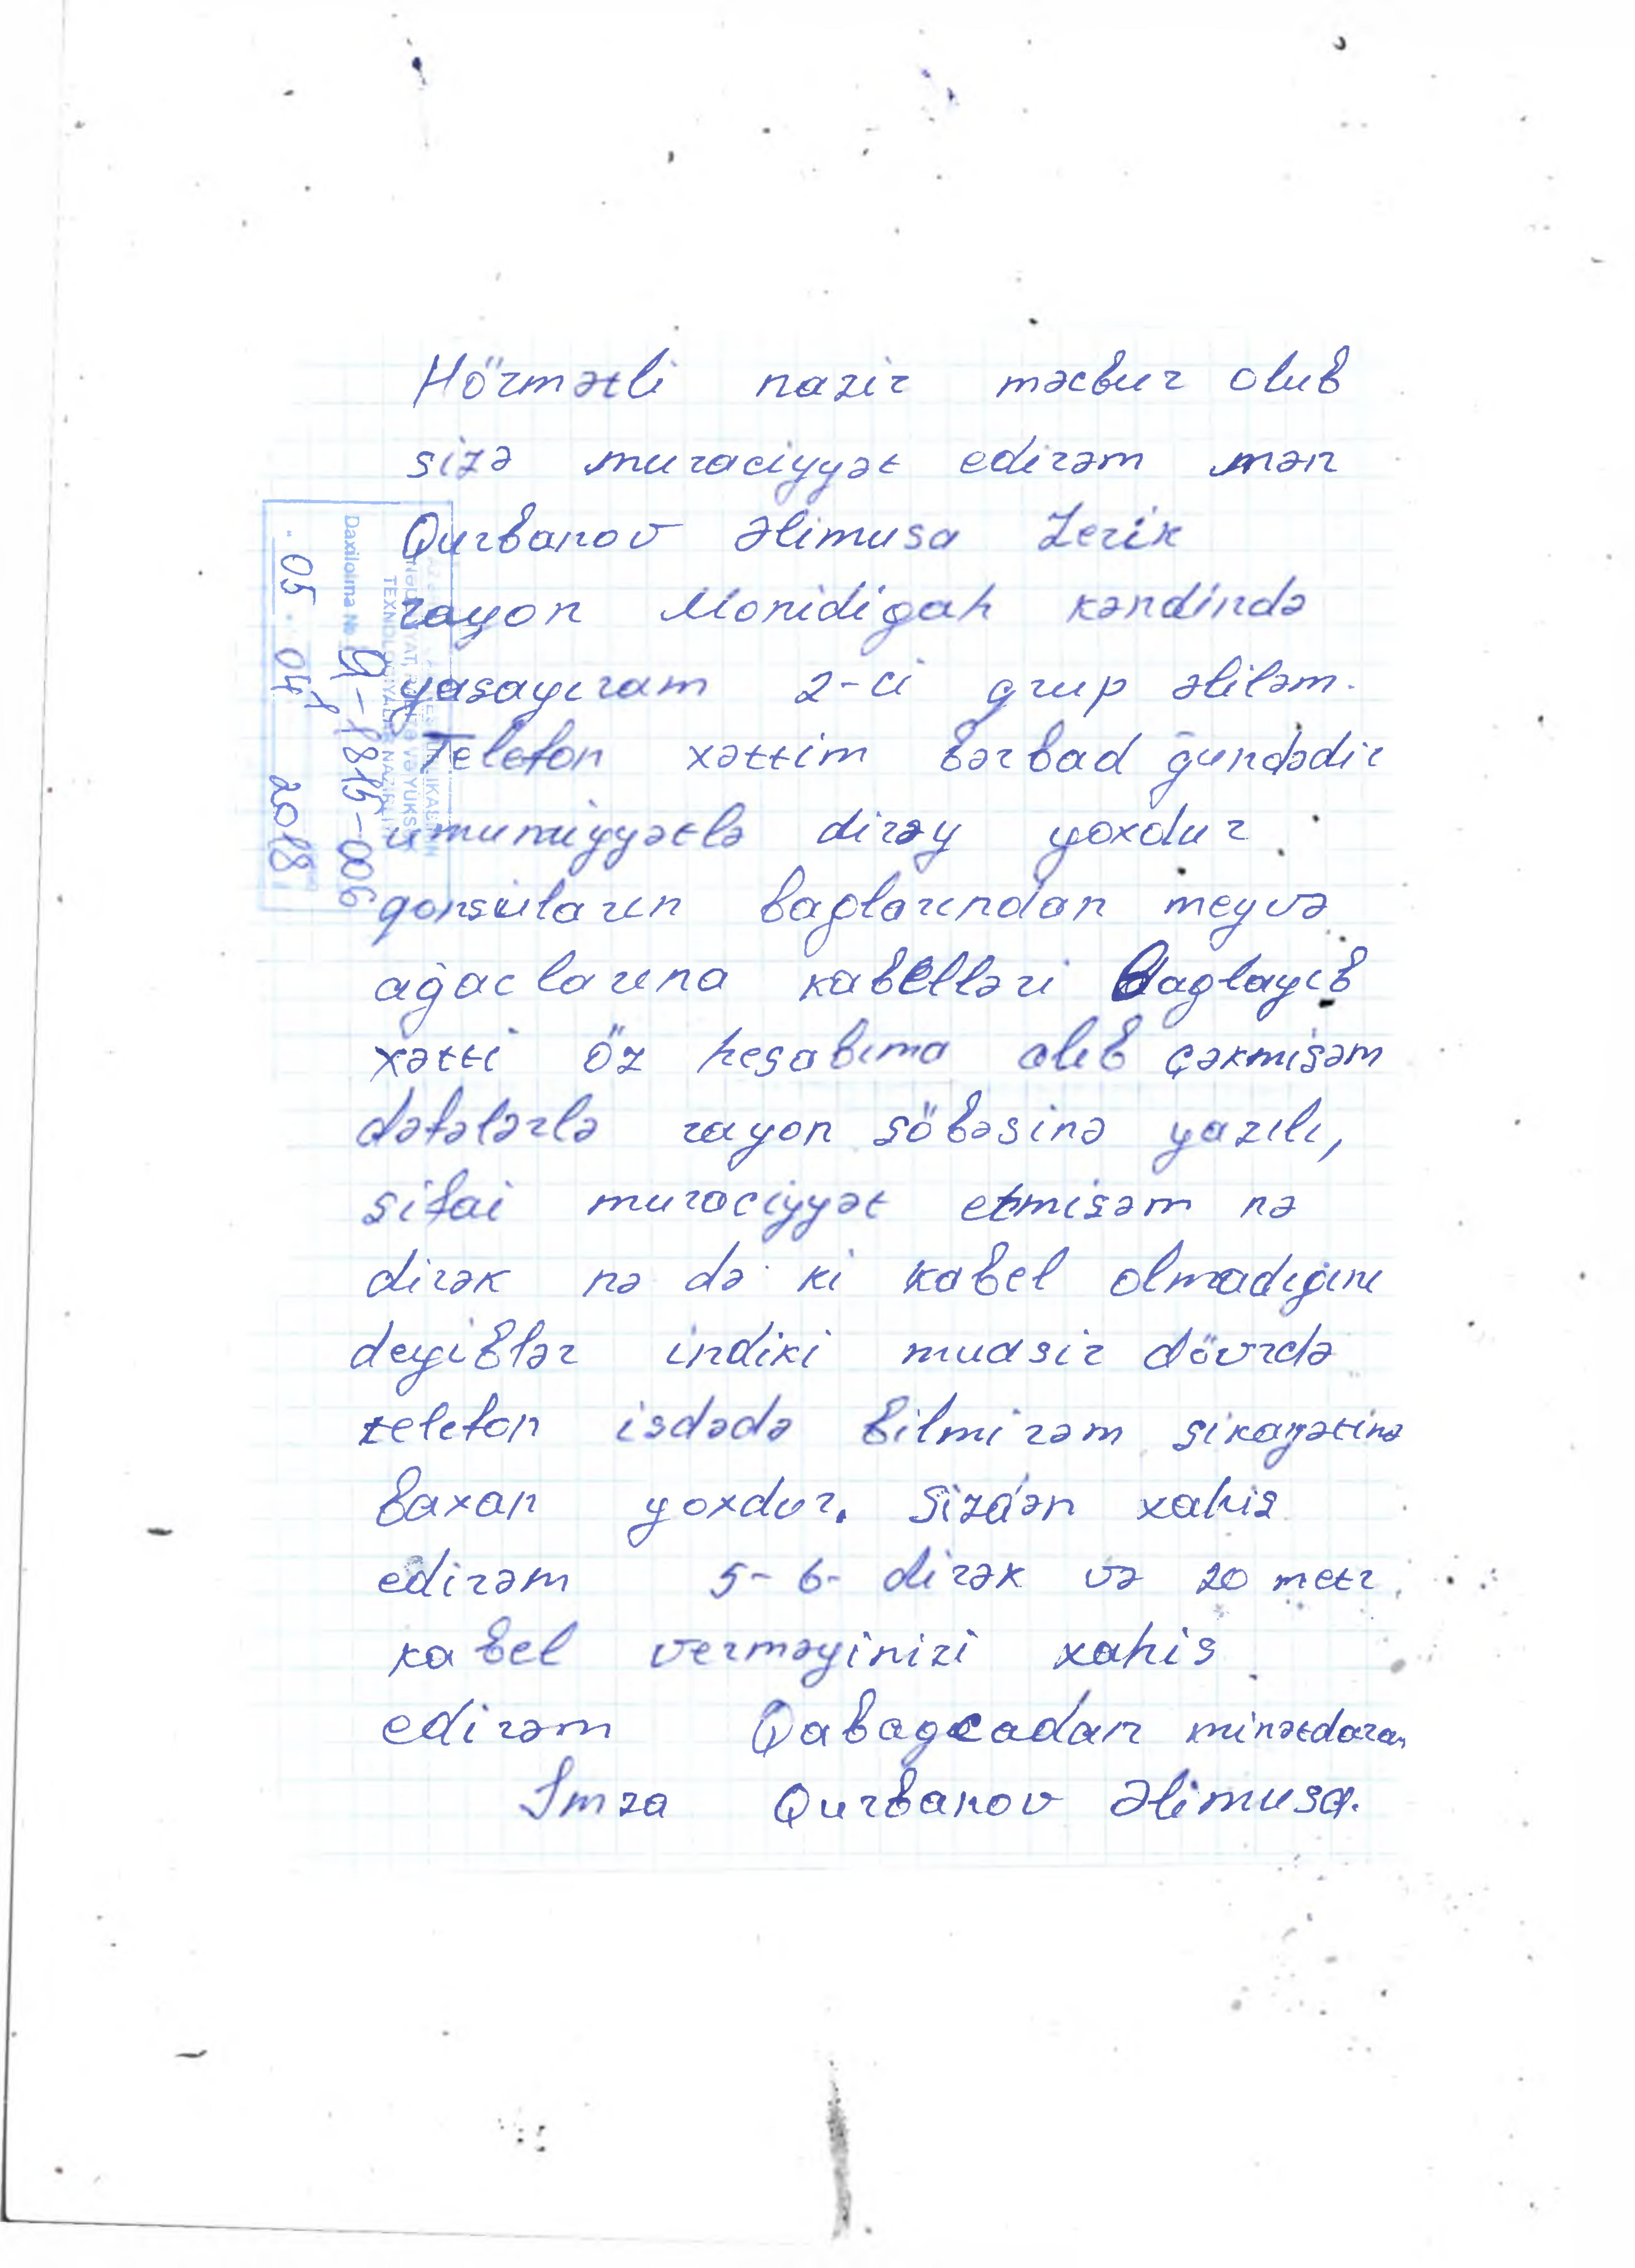 Hörmətli nazir məcbur olub
sizə muraciyyət edirəm mən
Qurbanov Əlimusa Lerik
rayon Monidigah kəndində
yasayıram 2-ci grup əliləm.
Telefon xəttim bərbad gundədir
umumiyyətlə dirəy yoxdur
qonsuların baglarından meyvə
ağaclarına kabelləri baglayıb
xətti öz hesabıma alıb çəkmişəm
dəfələrlə rayon söbəsinə yazılı,
sifai muraciyyət etmisəm nə
dirək nə də ki kabel olmadıgını
deyiblər indiki muasir dövrdə
telefon isdədə bilmirəm şikayətinə
baxan yoxdur. Sizdən xahis
edirəm 5-6- dirək və 20 metr
kabel verməyinizi xahis
edirəm Qabagcadan minətdaram
Imza Qurbanov Əlimusa.
TEXNOLOGİYALAR NAZİRLİYİ
Daxilolma №
05 04 2018